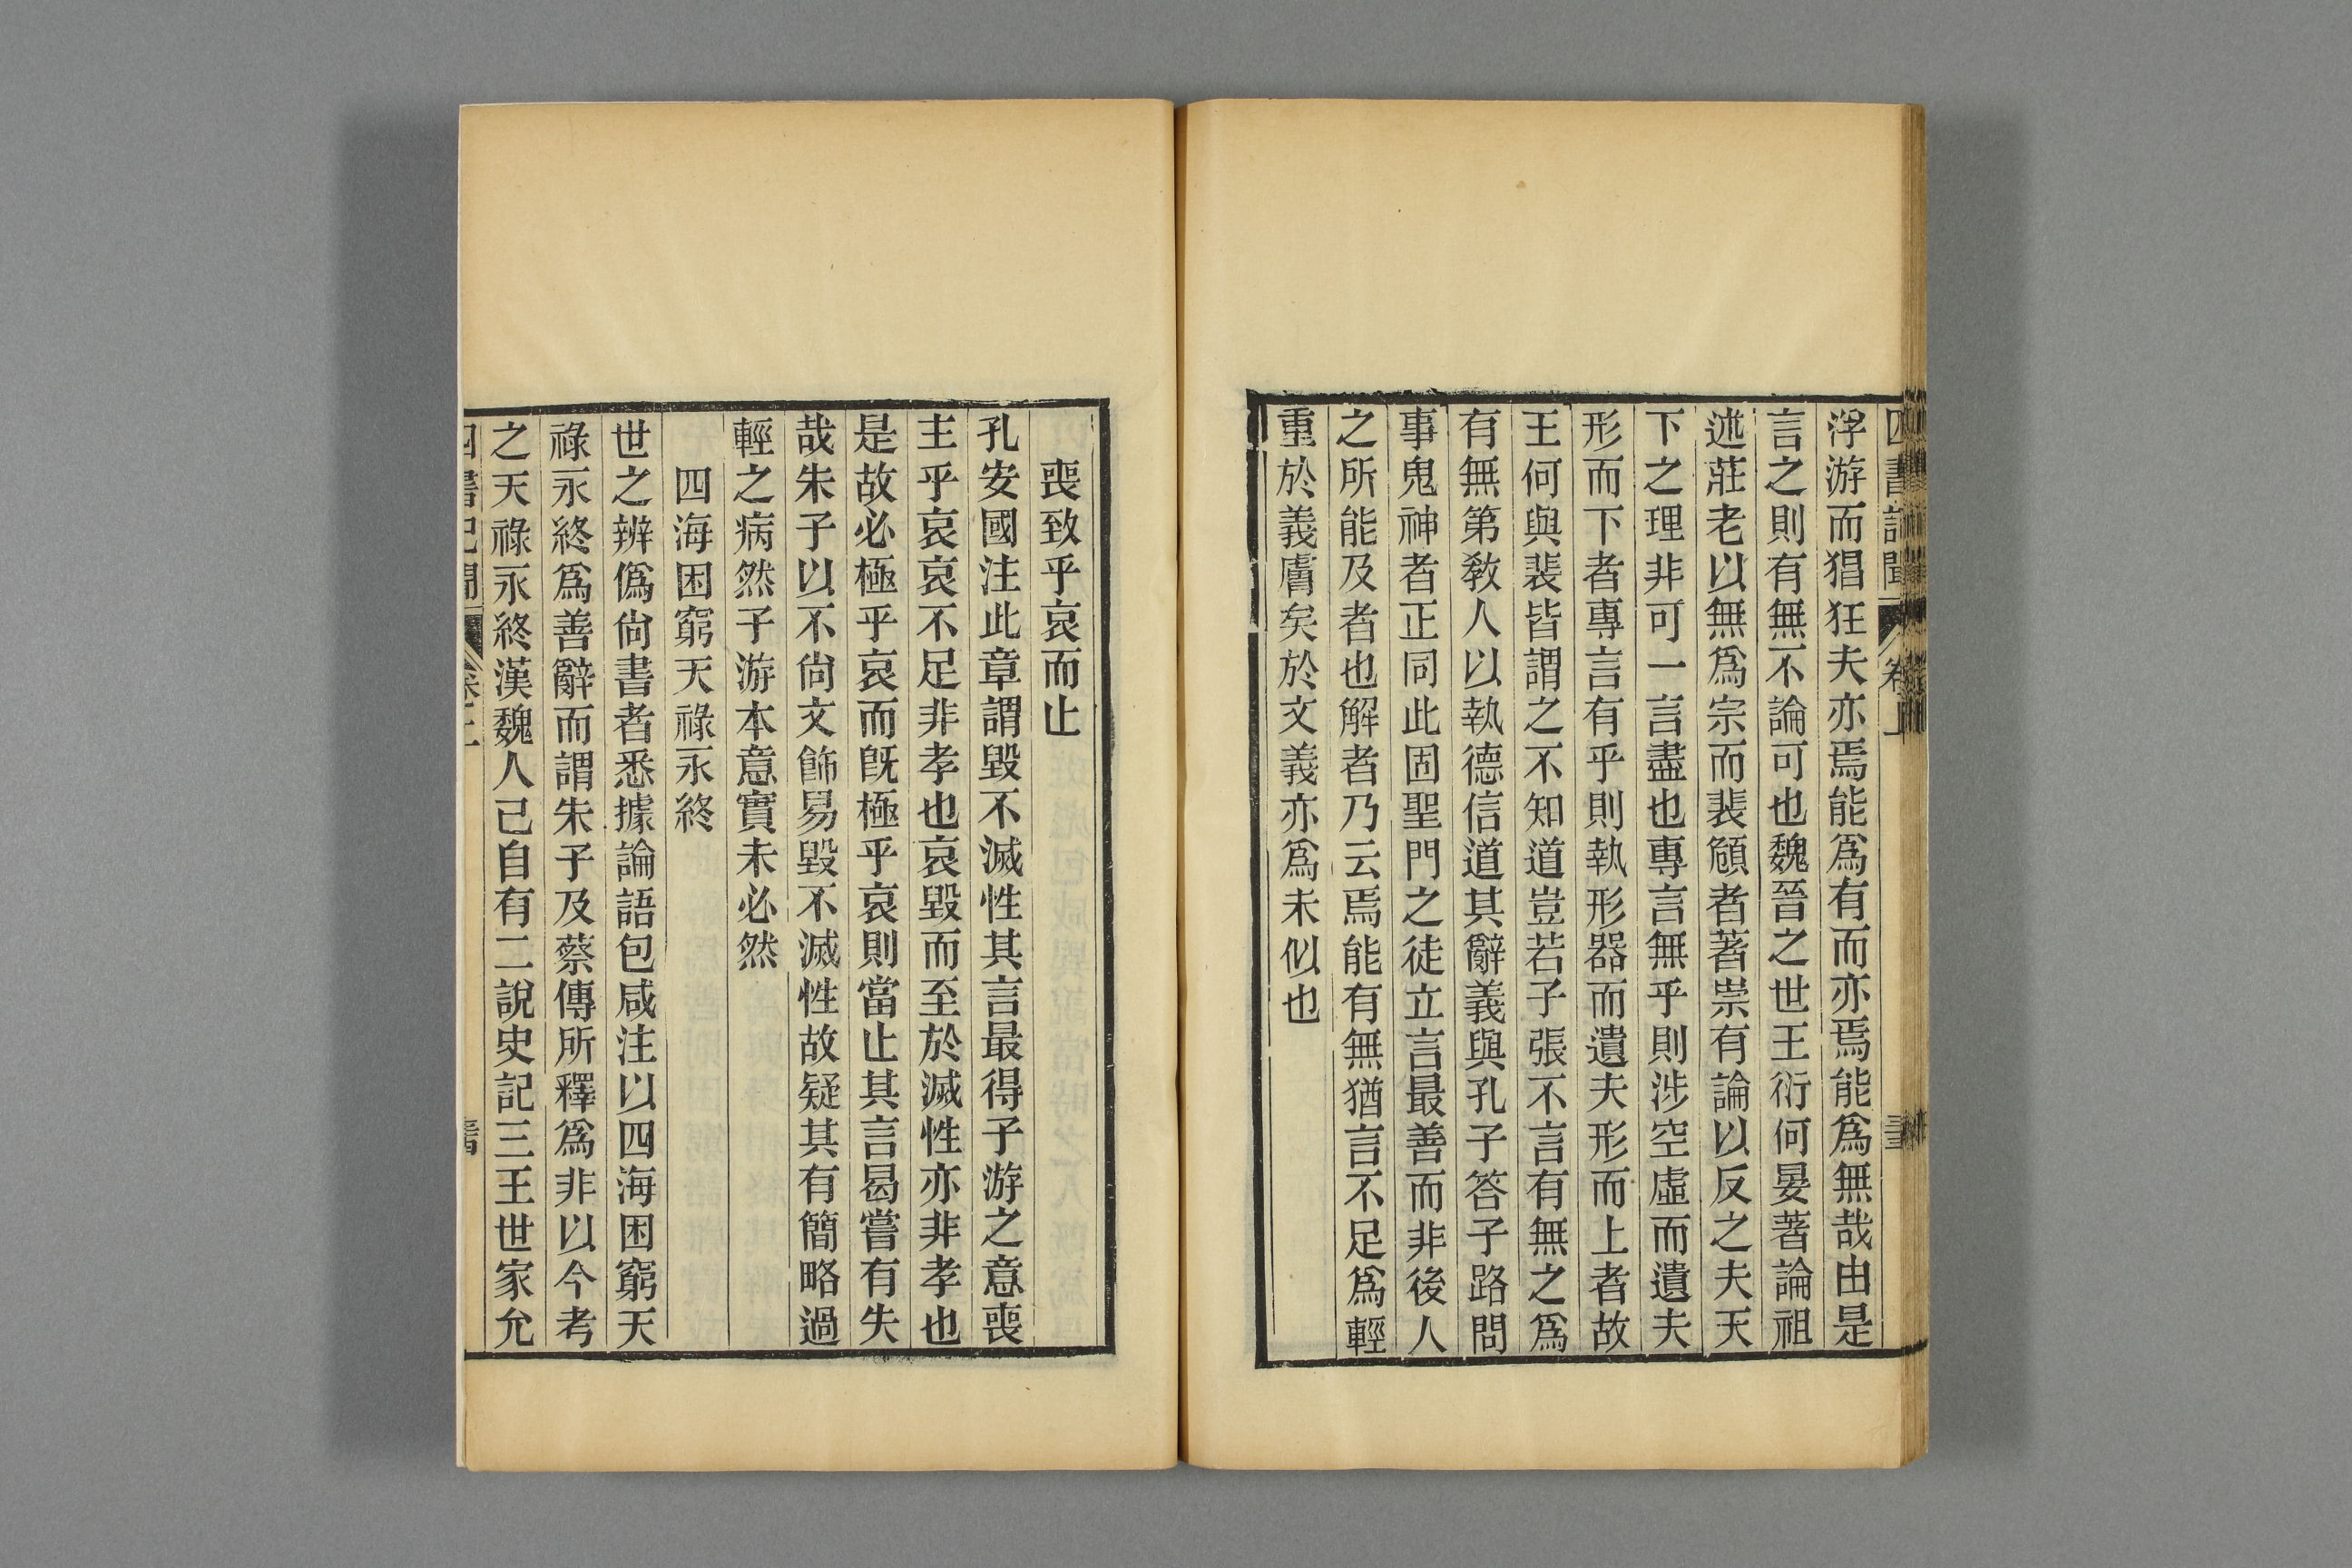 浮游而猖狂夫亦焉能爲有而亦焉能爲無哉由是
言之則有無不論可也魏晉之世王衍何晏著論祖
述莊老以無爲宗而裴頠者著崇有論以反之夫天
下之理非可一言盡也專言無乎則涉空虛而遺夫
形而下者專言有乎則執形器而遺夫形而上者故
王何與裴皆謂之不知道豈若子張不言有無之爲
有無第敎人以執德信道其辭義與孔子答子路問
事鬼神者正同此固聖門之徒立言最善而非後人
之所能及者也解者乃云焉能有無猶言不足爲輕
重於義膚矣於文義亦爲未似也
喪致乎哀而止
孔安國注此章謂毀不滅性其言最得子游之意喪
主乎哀哀不足非孝也哀毀而至於滅性亦非孝也
是故必極乎哀而旣極乎哀則當止其言曷嘗有失
哉朱子以不尙文飾易毀不滅性故疑其有簡略過
輕之病然子游本意實未必然
四海困窮天祿永終
世之辨僞尙書者悉據論語包咸注以四海困窮天
祿永終爲善辭而謂朱子及蔡傳所釋爲非以今考
之天祿永終漢魏人已自有二說史記三王世家允